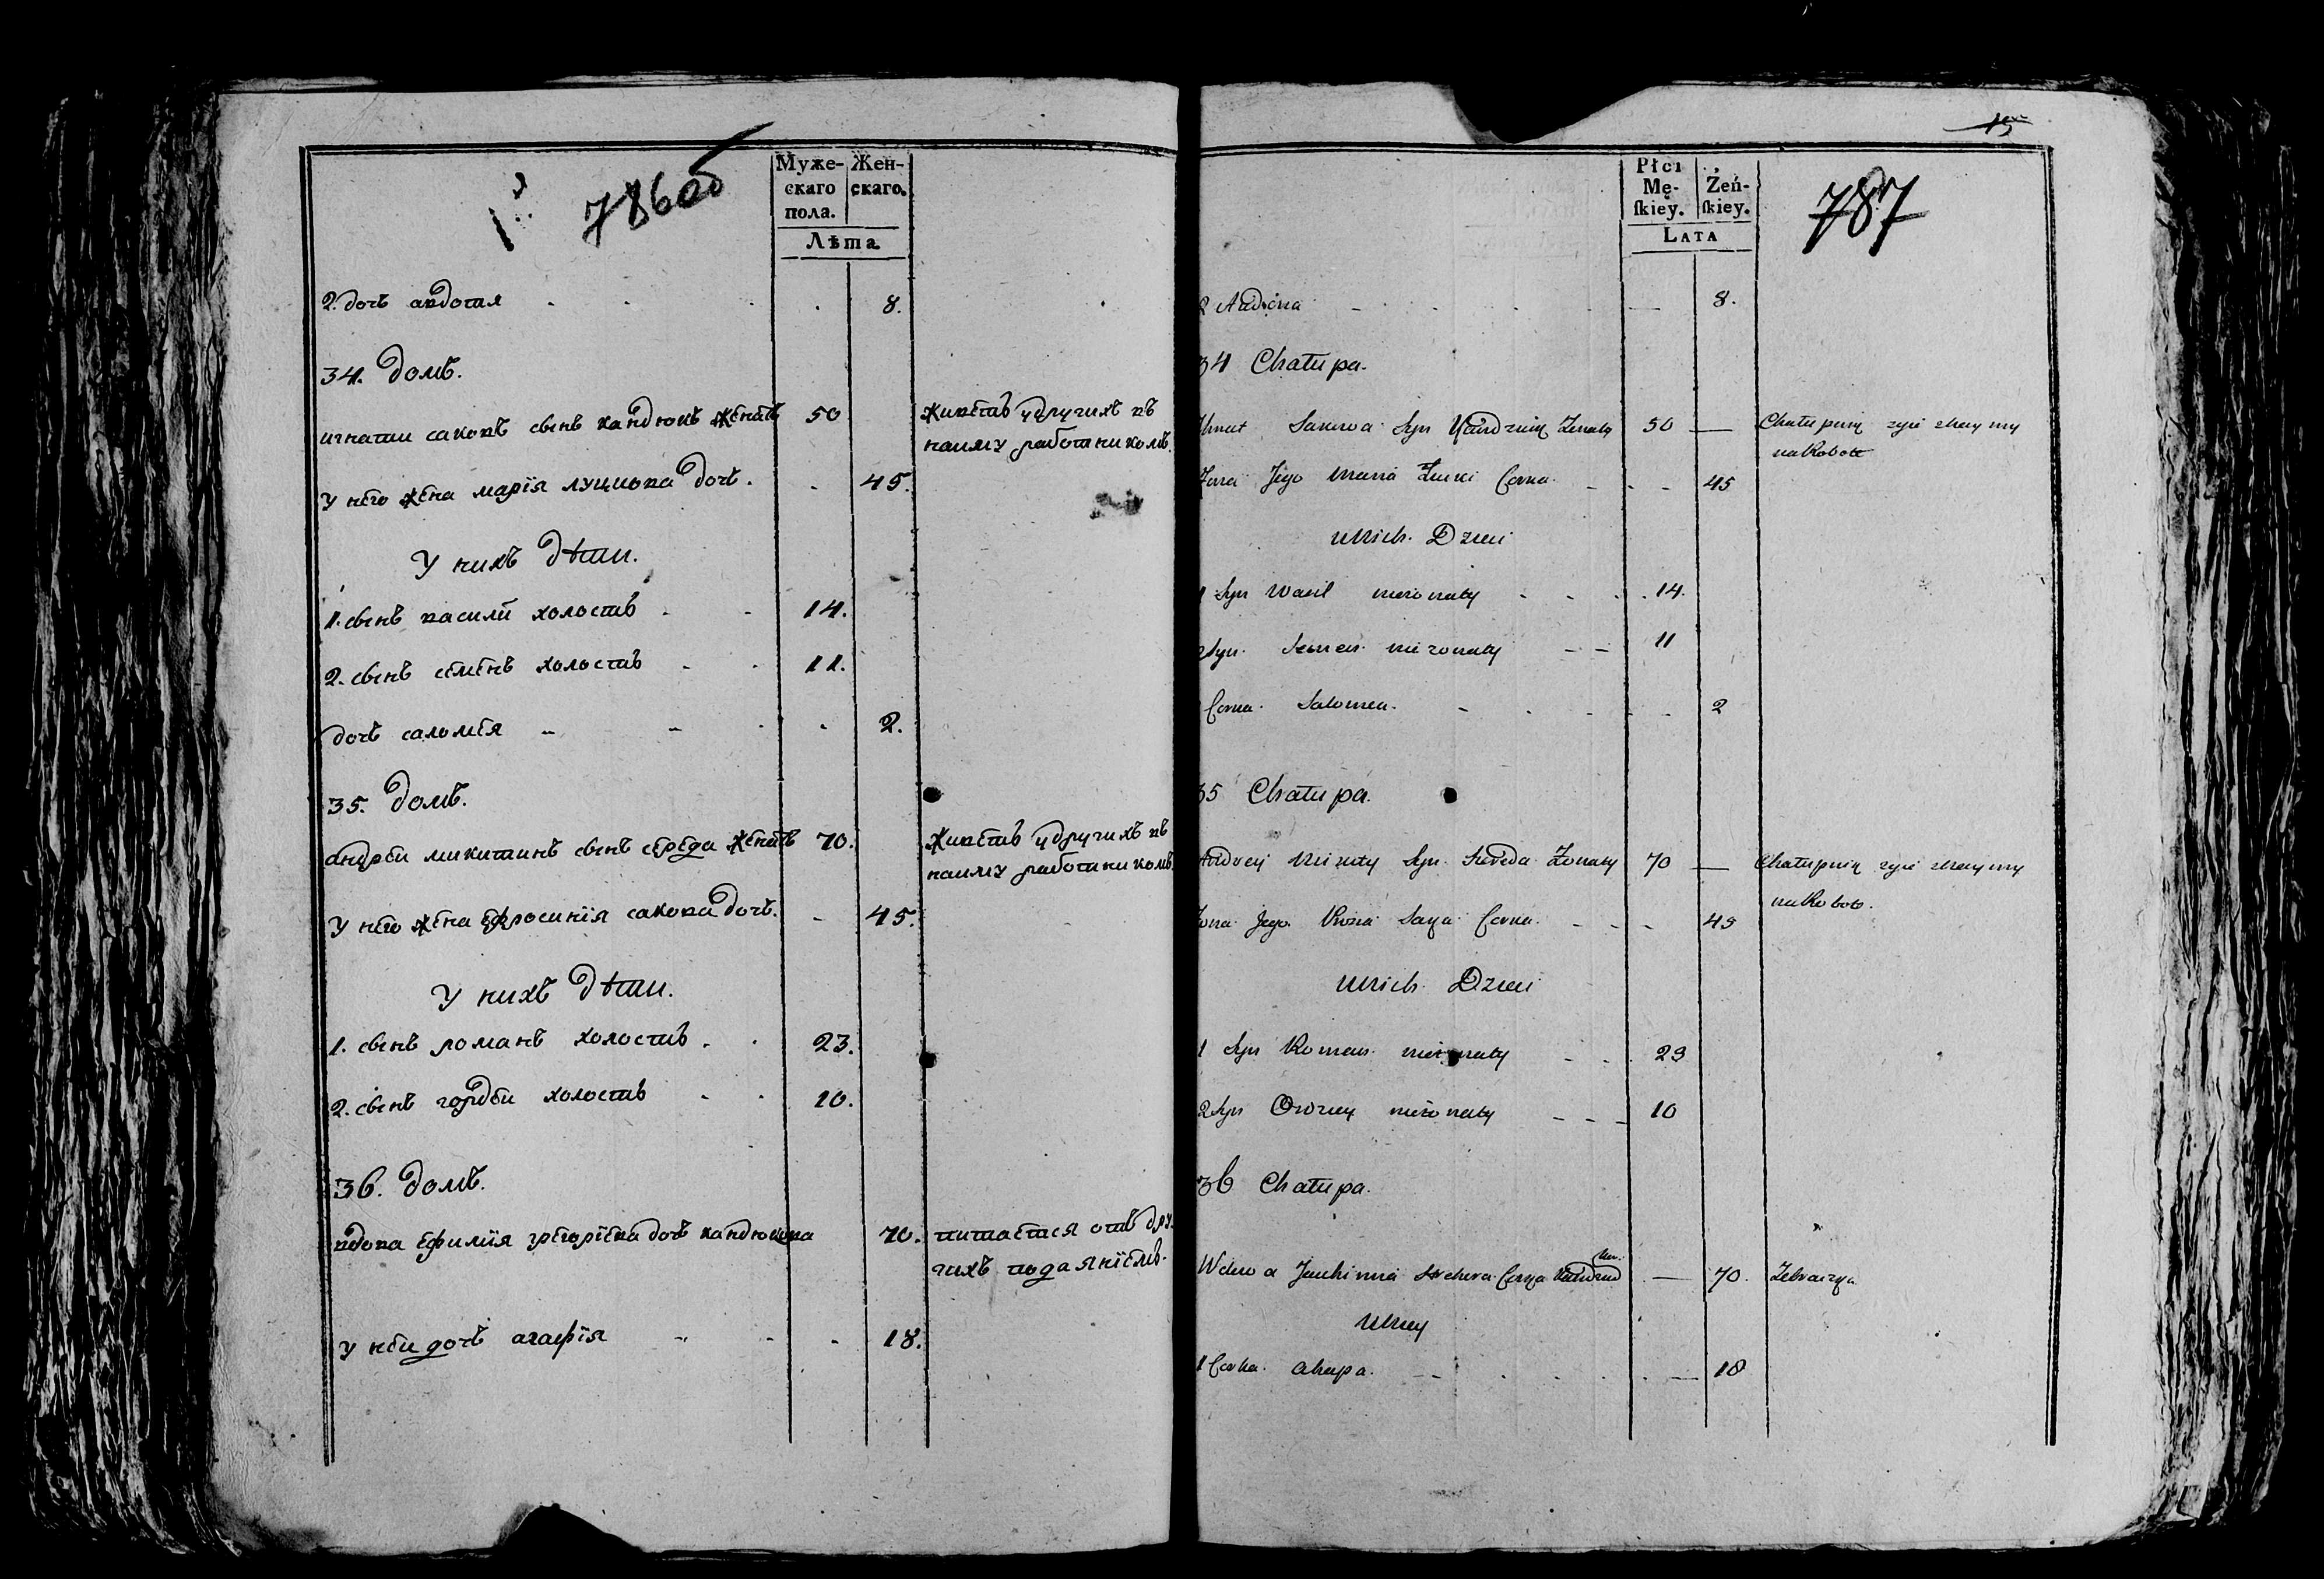 786 об
Муже-
скаго
пола.
Жен-
скаго.
Лѣта
2. дочь авдотия 8.
34. домъ.
игнатии саковъ сынъ кандюкъ женатъ 50
живетъ у других въ
наимы работникомъ.
у него жена марія луцкова дочь. 45.
У нихъ дѣти.
1. сынъ василй холостъ 14.
2. сынъ семенъ холостъ 11.
дочь саломея 2.
35. домъ.
андреи микитинъ сынъ середа женатъ 70.
живетъ у других въ
наимы работникомъ.
у него жена ефросинія сакова дочь. 45.
У нихъ дѣти.
1. сынъ романъ холостъ 23.
2. сынъ гордеи холостъ 10.
36. домъ.
вдова ефимія григоріева дочь кандюкова 70.
питается отъ дру-
гихъ подаяніемъ.
у неи дочь агафія 18.
15
Płci
Mę-
ſkiey.
Żeń-
ſkiey.
LATA
787
2 8.
34 Chałupa.
Ihnat Sakowa Syn Żonaty 50 —
Chałupnik
na Robote
Żona Jego Maria Corka 45
U Nich Dzieci
1 Syn Wasil nieżonaty 14.
2 Syn Semen nieżonaty 11
Corka Salomea 2
35 Chałupa.
Andrey Mikity Syn Sereda Żonaty 70 —
Chałupnik
na Robote.
Żona Jego Corka 45
U Nich Dzieci
1 Syn Roman nieżonaty 23
2 Syn nieżonaty 10
36 Chałupa.
Wdowa Corka — 70.
U Niey
1 Corka Ahapa. — 18